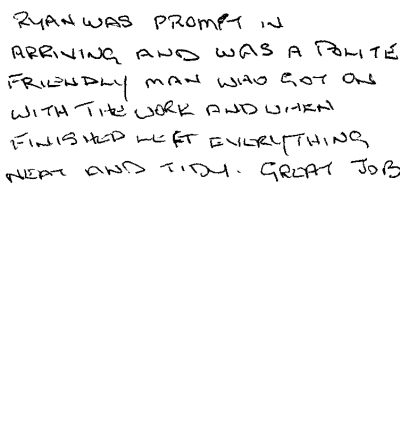 RYAN WAS PROMPT IN
ARRIVING AND WAS A POLITE
FRIENDLY MAN WHO GOT ON
WITH THE WORK AND WHEN
FINISHED LEFT EVERYTHING
NEAT AND TIDY. GREAT JOB